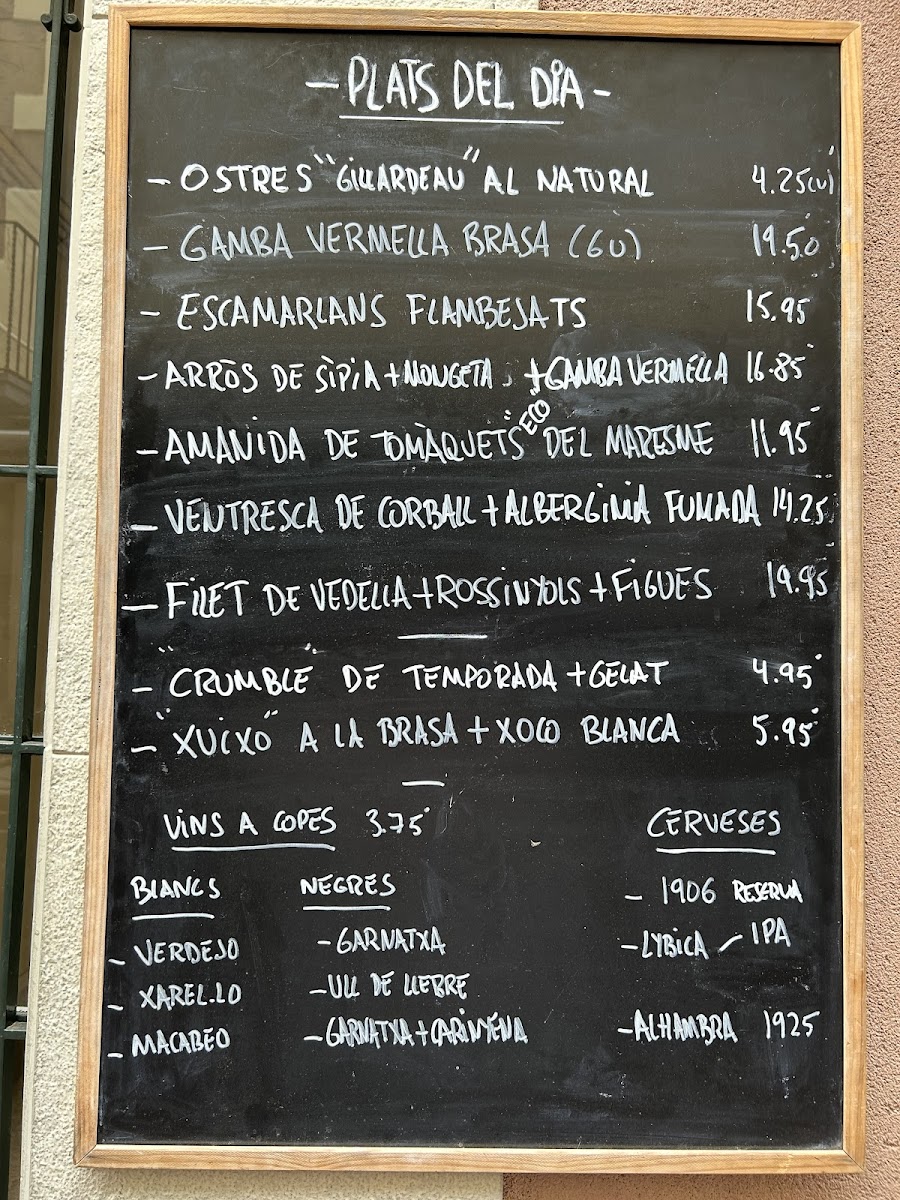 - PLATS DEL DIA -
- OSTRES "GILLARDEAU" AL NATURAL 4.25(U)
- GAMBA VERMELLA BRASA (6U) 19.50
- ESCAMARLANS FLAMBEJATS 15.95
- ARRÒS DE SÍPIA + MONGETA + GAMBA VERMELLA 16.85
- AMANIDA DE TOMÀQUETS "ECO" DEL MARESME 11.95
- VENTRESCA DE CORBALL + ALBERGINIA FUMADA 14.25
- FILET DE VEDELLA + ROSSINYOLS + FIGUES 19.95
- "CRUMBLE" DE TEMPORADA + GELAT 4.95
- "XUIXO" A LA BRASA + XOCO BLANCA 5.95
VINS A COPES 3.75
BLANCS
- VERDEJO
- XAREL.LO
- MACABEO
NEGRES
- GARNATXA
- ULL DE LLEBRE
- GARNATXA + CARINYENA
CERVESES
- 1906 RESERVA
- LYBICA / IPA
- ALHAMBRA 1925